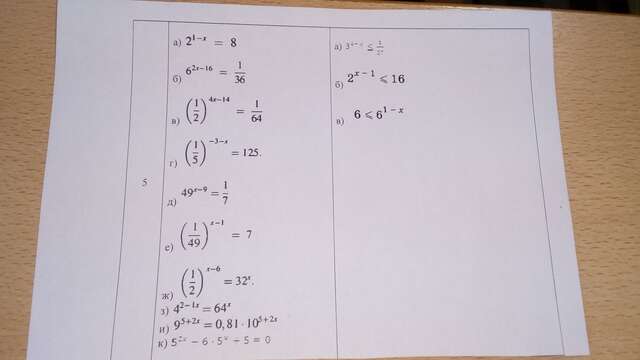 5
а) 2^{1-x} = 8
б) 6^{2x-16} = \frac{1}{36}
в) \left(\frac{1}{2}\right)^{4x-14} = \frac{1}{64}
г) \left(\frac{1}{5}\right)^{-3-x} = 125.
д) 49^{x-9} = \frac{1}{7}
е) \left(\frac{1}{49}\right)^{x-1} = 7
ж) \left(\frac{1}{2}\right)^{x-6} = 32^{x}.
з) 4^{2-1x} = 64^{x}
и) 9^{5+2x} = 0,81 · 10^{5+2x}
к) 5^{2x} − 6 · 5^{x} + 5 = 0
а)
б) 2^{x-1} ⩽ 16
в) 6 ⩽ 6^{1-x}